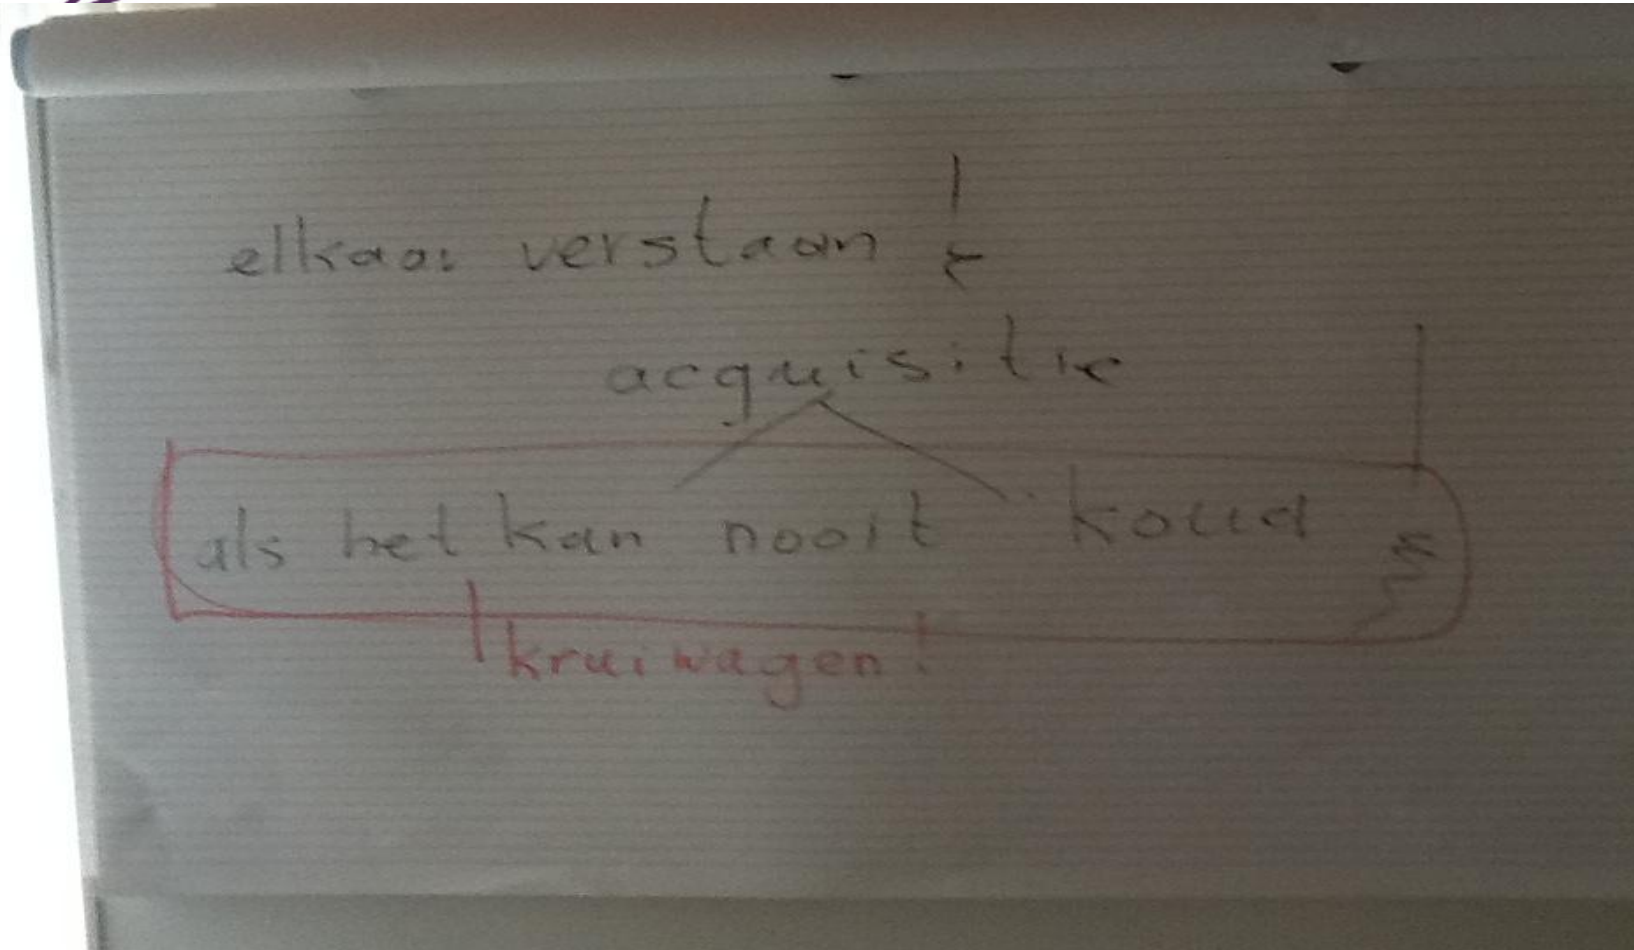 elkaar verstaan !
acquisitie
als het kan nooit koud !
kruiwagen!